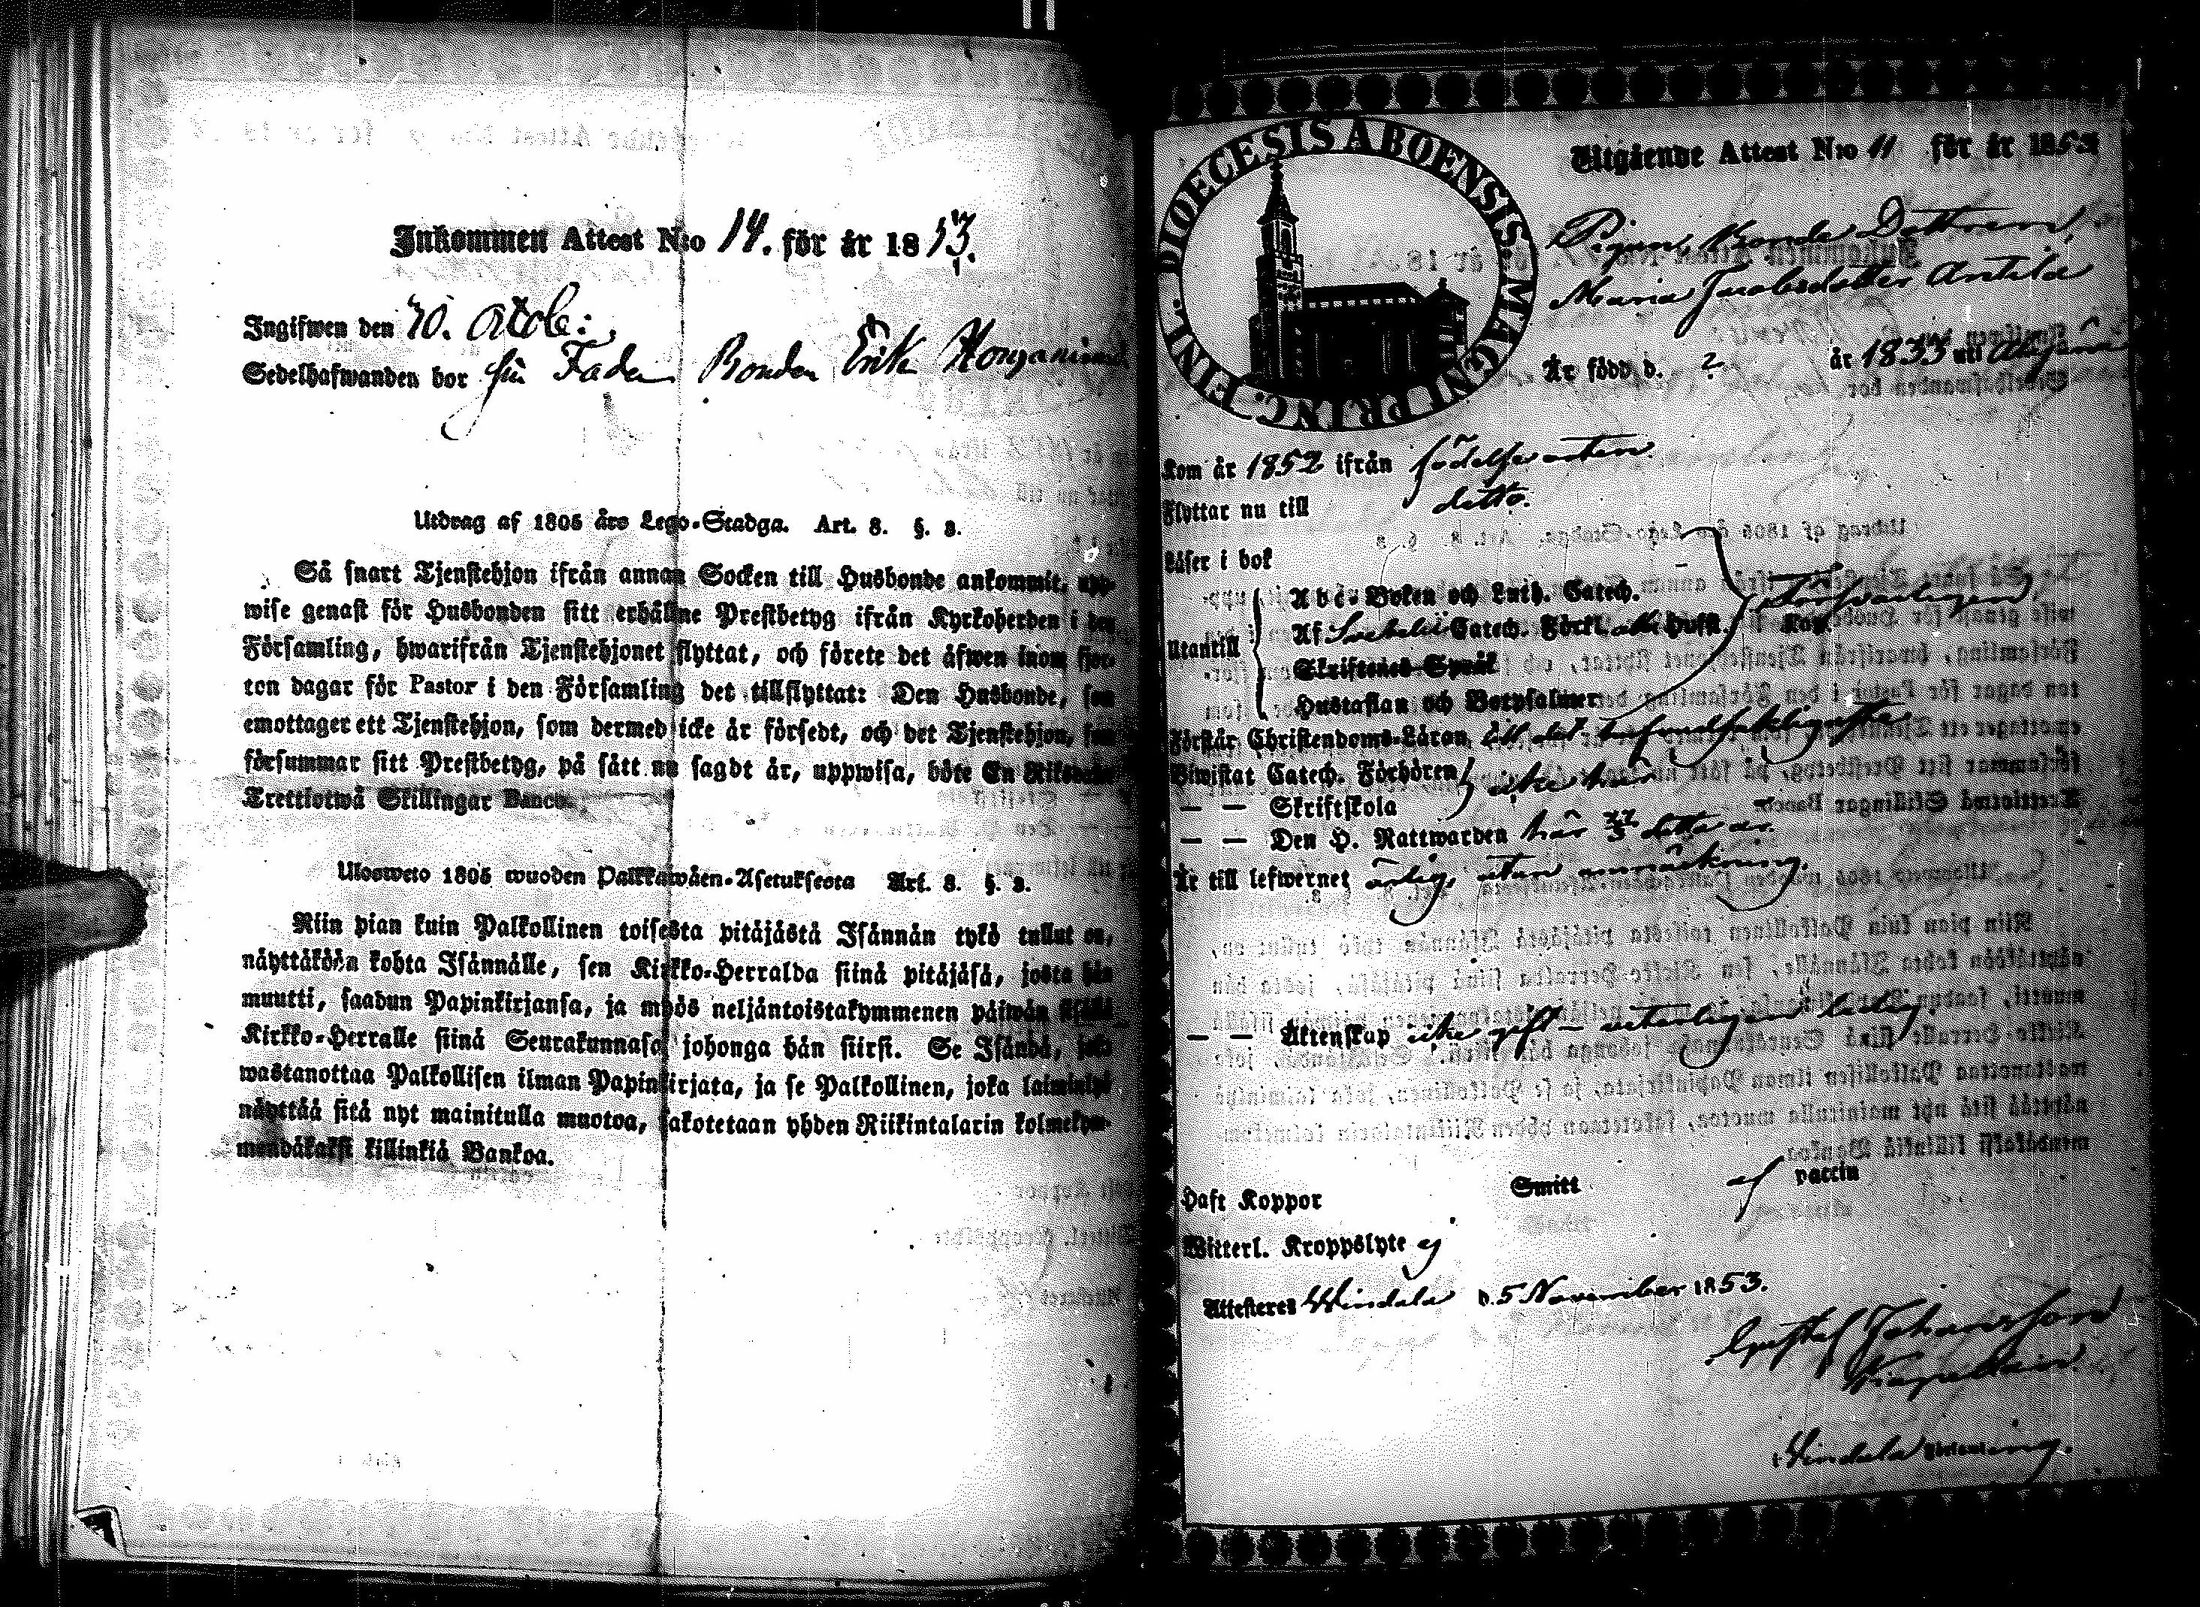 Inkommen Attest N:o 14. för år 1853.
Ingifwen den 30. Octob:
Sedelhafwanden bor hos Fadren Bonden Erik
Utdrag af 1805 års Lego-Stadga. Art. 8. §. 3.
Så snart Tjenstehjon ifrån annan Socken till Husbonde ankommit, upp-
wise genast för Husbonden sitt erhållne Prestbetyg ifrån Kyrkoherden i den
Församling, hwarifrån Tjenstehjonet flyttat, och förete det äfwen inom fjor-
ton dagar för Pastor i den Församling det tillflyttat: Den Husbonde, som
emottager ett Tjenstehjon, som dermed icke är försedt, och det Tjenstehjon, som
försummar sitt Prestbetyg, på sätt nu sagdt är, uppwisa, böte En Riksdaler
Trettiotwå Skillingar Banco.
Ulosweto 1805 wuoden Palkkawäen-Asetuksesta Art. 8. §. 3.
Niin pian kuin Palkollinen toisesta pitäjästä Isännän tykö tullut on,
näyttäköön kohta Isännälle, sen Kirkko-Herralda siinä pitäjäsä, josta hän
muutti, saadun Papinkirjansa, ja myös neljäntoistakymmenen päiwän sisällä
Kirkko-Herralle siinä Seurakunnasa, johonga hän siirsi. Se Isändä, joka
wastanottaa Palkollisen ilman Papinkirjata, ja se Palkollinen, joka laiminlyö
näyttää sitä nyt mainitulla muotoa, sakotetaan yhden Riikintalarin kolmekym-
mendäkaksi killinkiä Bankoa.
DIOECESIS ABOENSIS. MAGNI PRINC. FINL.
Utgående Attest N:o 11 för år 1853
Pigan, Bonde Dottren,
Maria Jacobsdotter Antila
Är född d. ? år 1833 uti
Kom år 1852 ifrån födelseorten
Flyttar nu till detto.
Läser i bok
Utantill
A b c-Boken och Luth. Catech.
Af Svebelii Catech. Förkl. Kap. Försvarligen,
Skriftenes Språk
Hustaflan och Botpsalmer
Förstår Christendoms-Läran till det
Biwistat Catech. Förhören
— — Skriftskola
icke här
— — Den H. Nattwarden här 27/3 detta år.
Är till lefwernet ärlig, utan anmärkning.
— — Äktenskap icke gift – veterligen ledig.
Haft Koppor Smitt af vaccin
Witterl. Kroppslyte ej
Attesteres Windala d. 5 November 1853.
Gustaf Johansson
Kapellan.
Windala